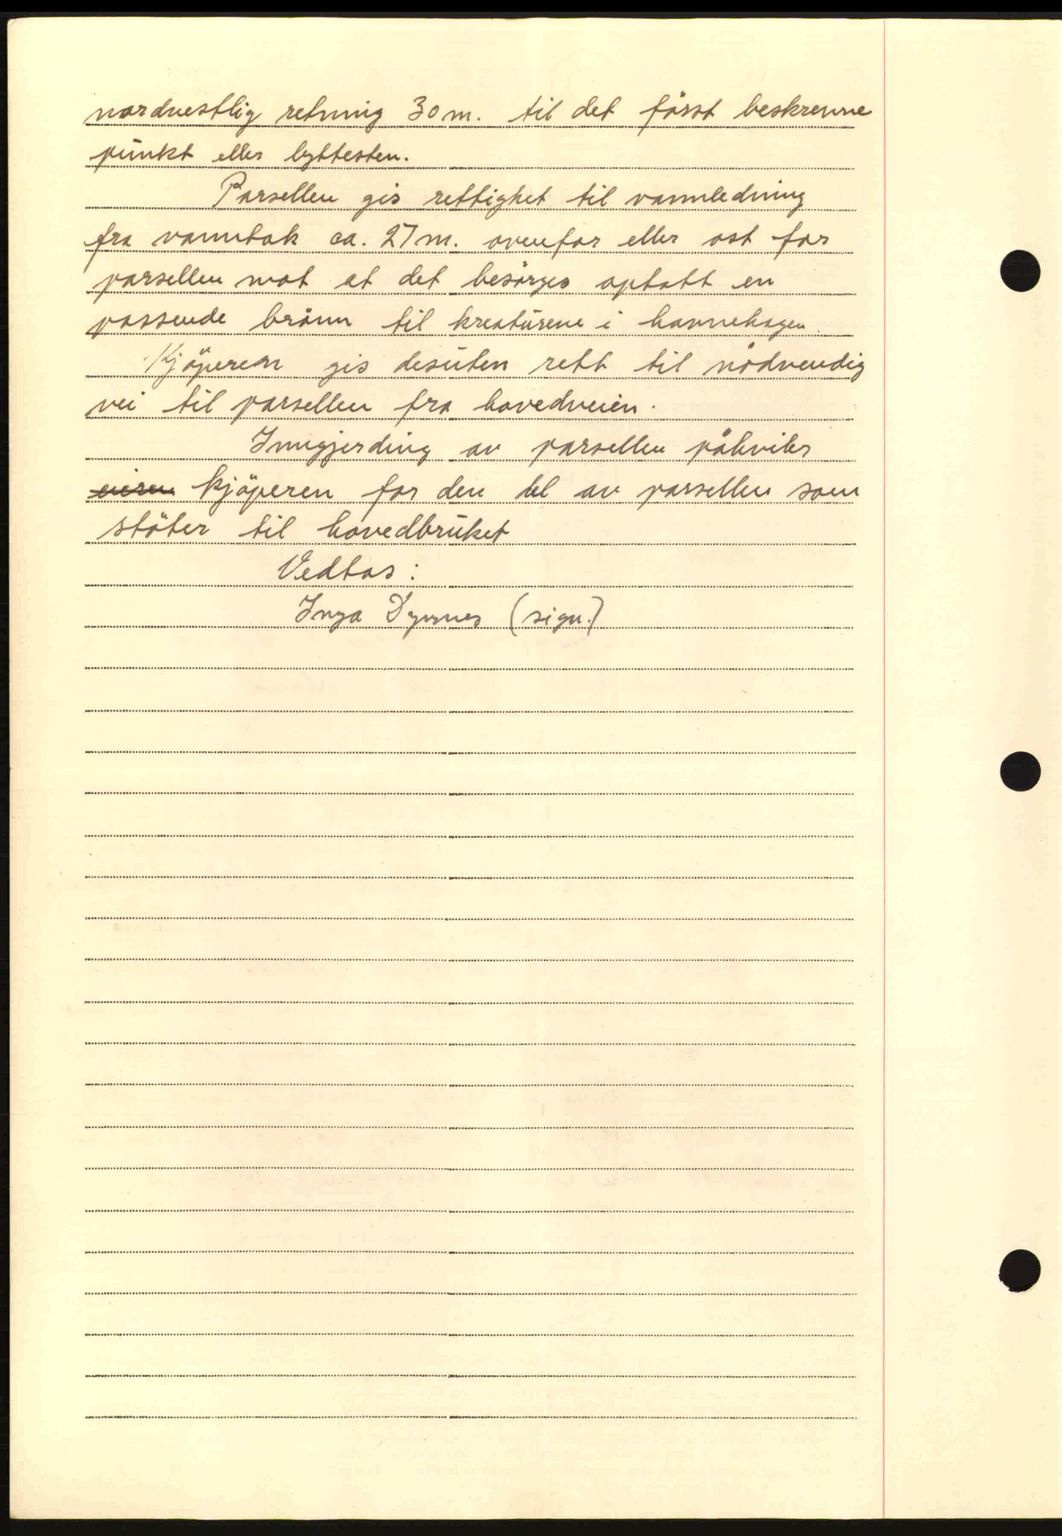 nordvestlig retning 30 m. til det først beskrevne
punkt eller byttesten.
Parsellen gis rettighet til vannledning
fra vanntak ca. 27 m. ovenfor eller øst for
parsellen mot at det besörges optatt en
passende brönn til kreatürene i havnehagen.
Kjöperen gis desüten rett til nödvendig
vei til parsellen fra hovedveien.
Inngjerding av parsellen påhviler
eieren kjöperen for den del av parsellen som
stöter til hovedbrüket
Vedtas:
Inga Dyrnes (sign.)